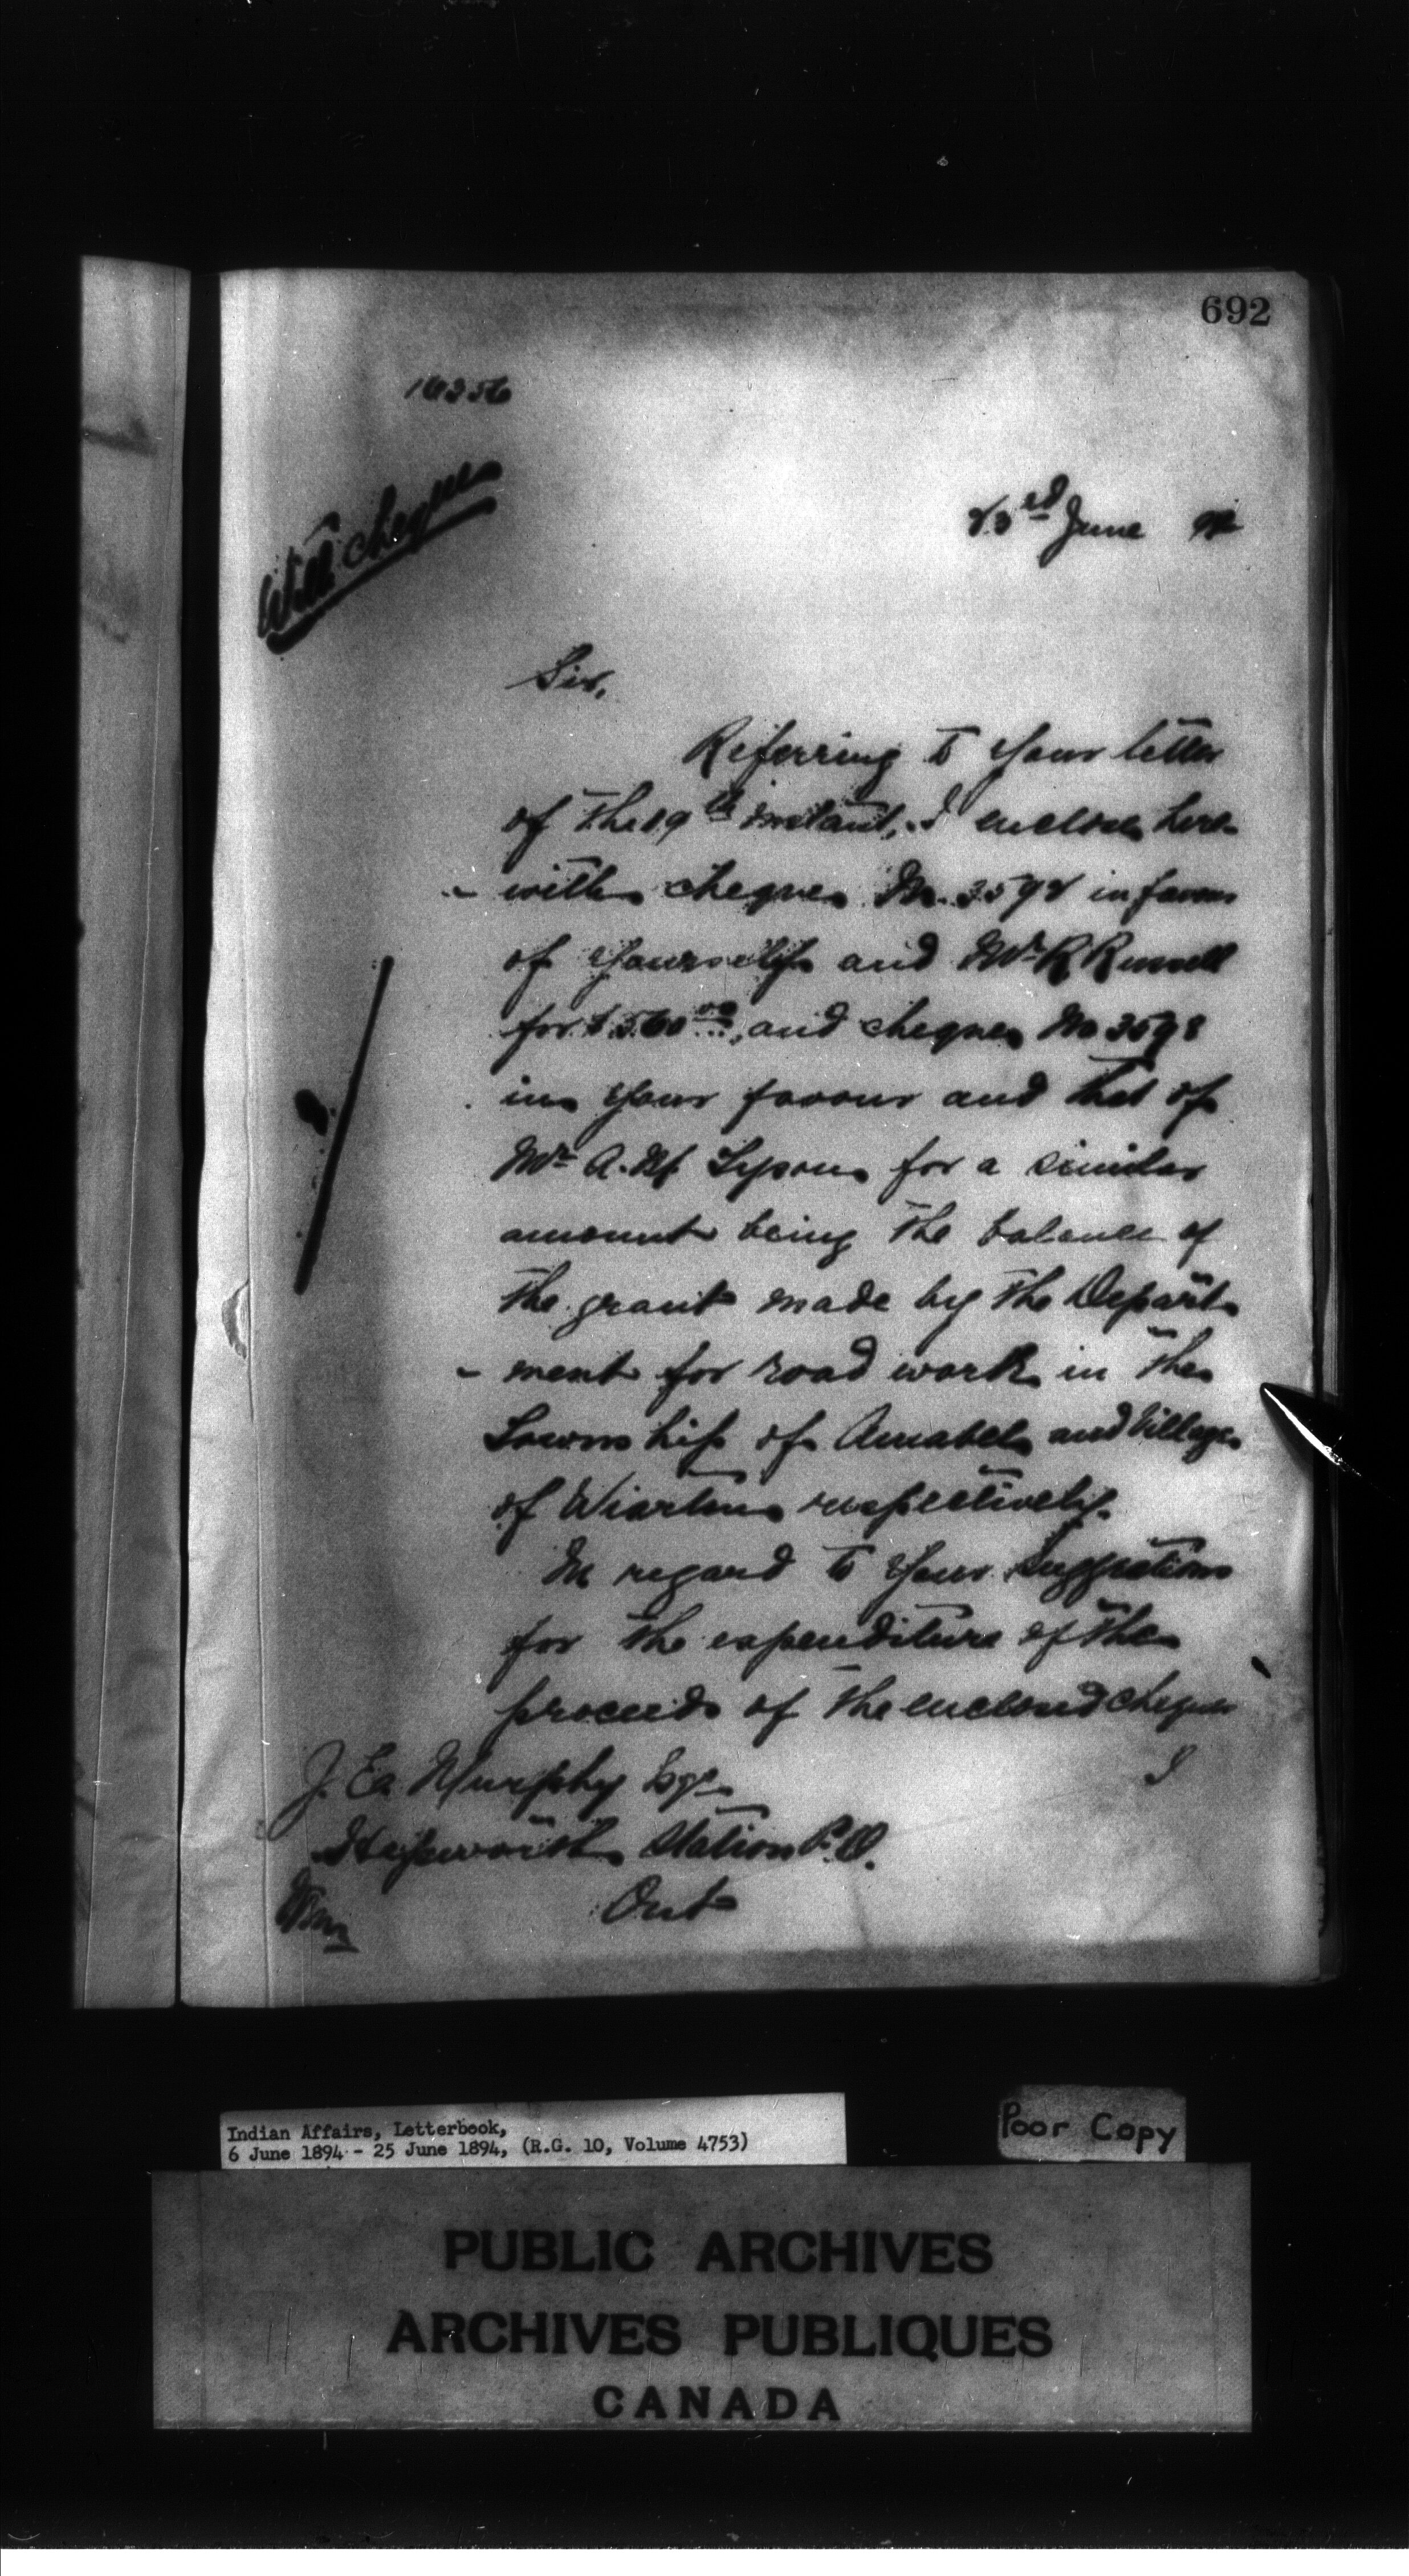 692
16256
With cheques
23rd June 94
Sir,
Referring to your letter
of the 19th instant, I enclose here-
- with cheque No. 3592 in favour
of yourself and Mr R Russell
for $ 560 00, and cheque No 3598
in your favour and that of
Mr A. M. for a similar
amount being the balance of
the grant made by the Depart-
- ment for road work in the
Township of Amabel and Village
of Wiarton respectively.
In regard to your suggestions
for the expenditure of the
proceeds of the enclosed cheques
I
J. Murphy Esqr
Hepworth Station P.O.
Ont
Indian Affairs, Letterbook,
6 June 1894 - 25 June 1894, (R.G. 10, Volume 4753)
Poor Copy
PUBLIC ARCHIVES
ARCHIVES PUBLIQUES
CANADA